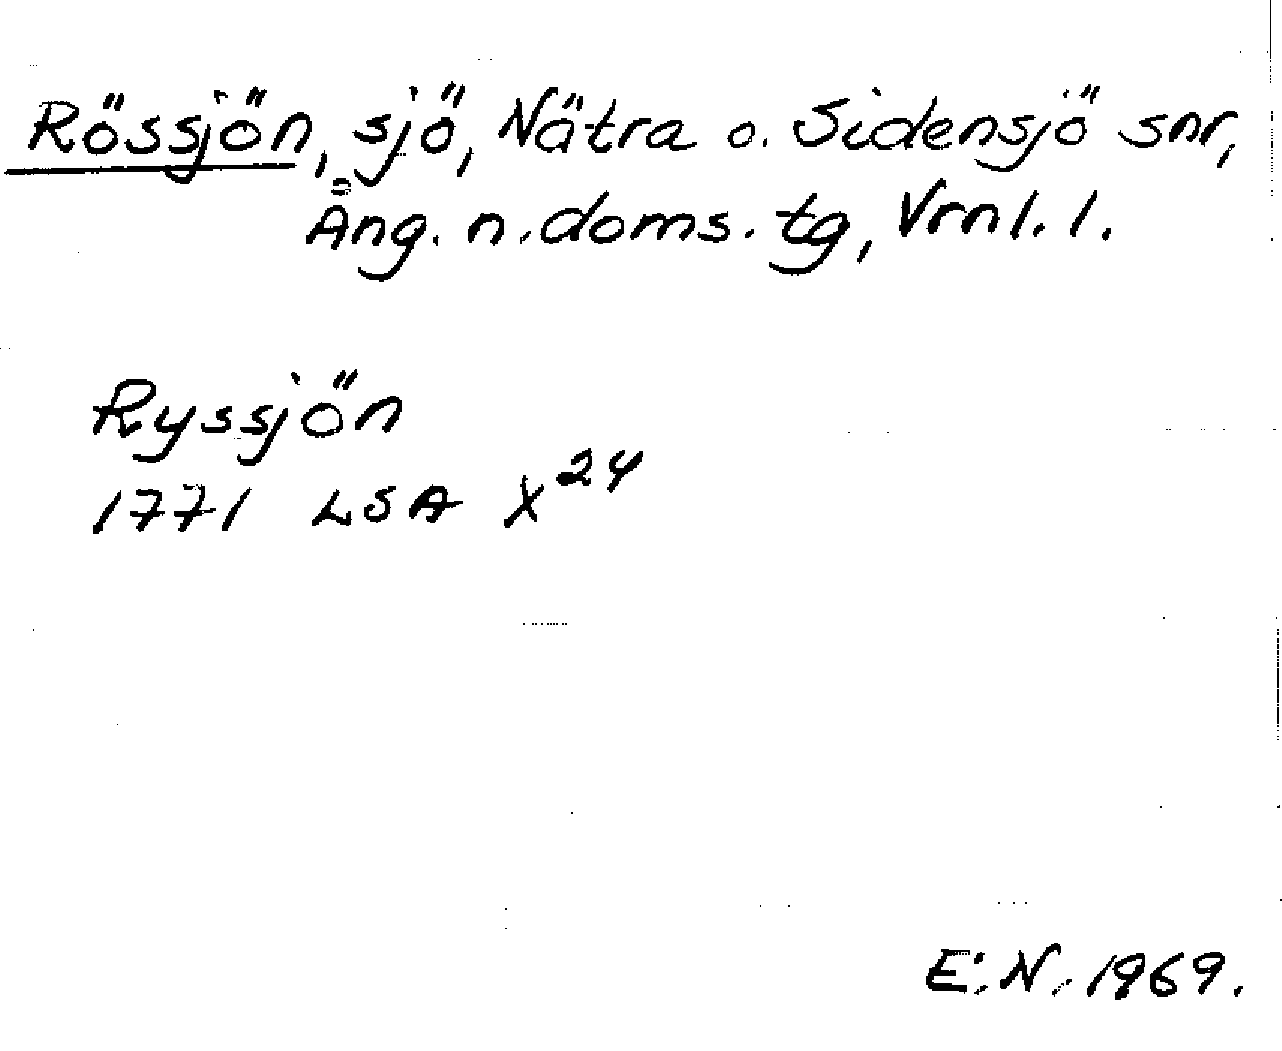 Rössjön, sjö, Nätra o. Sidensjö snr,
Ång. n. doms. tg, Vrnl. l.
Ryssjön
1771 LSA X24
E.N. 1969.